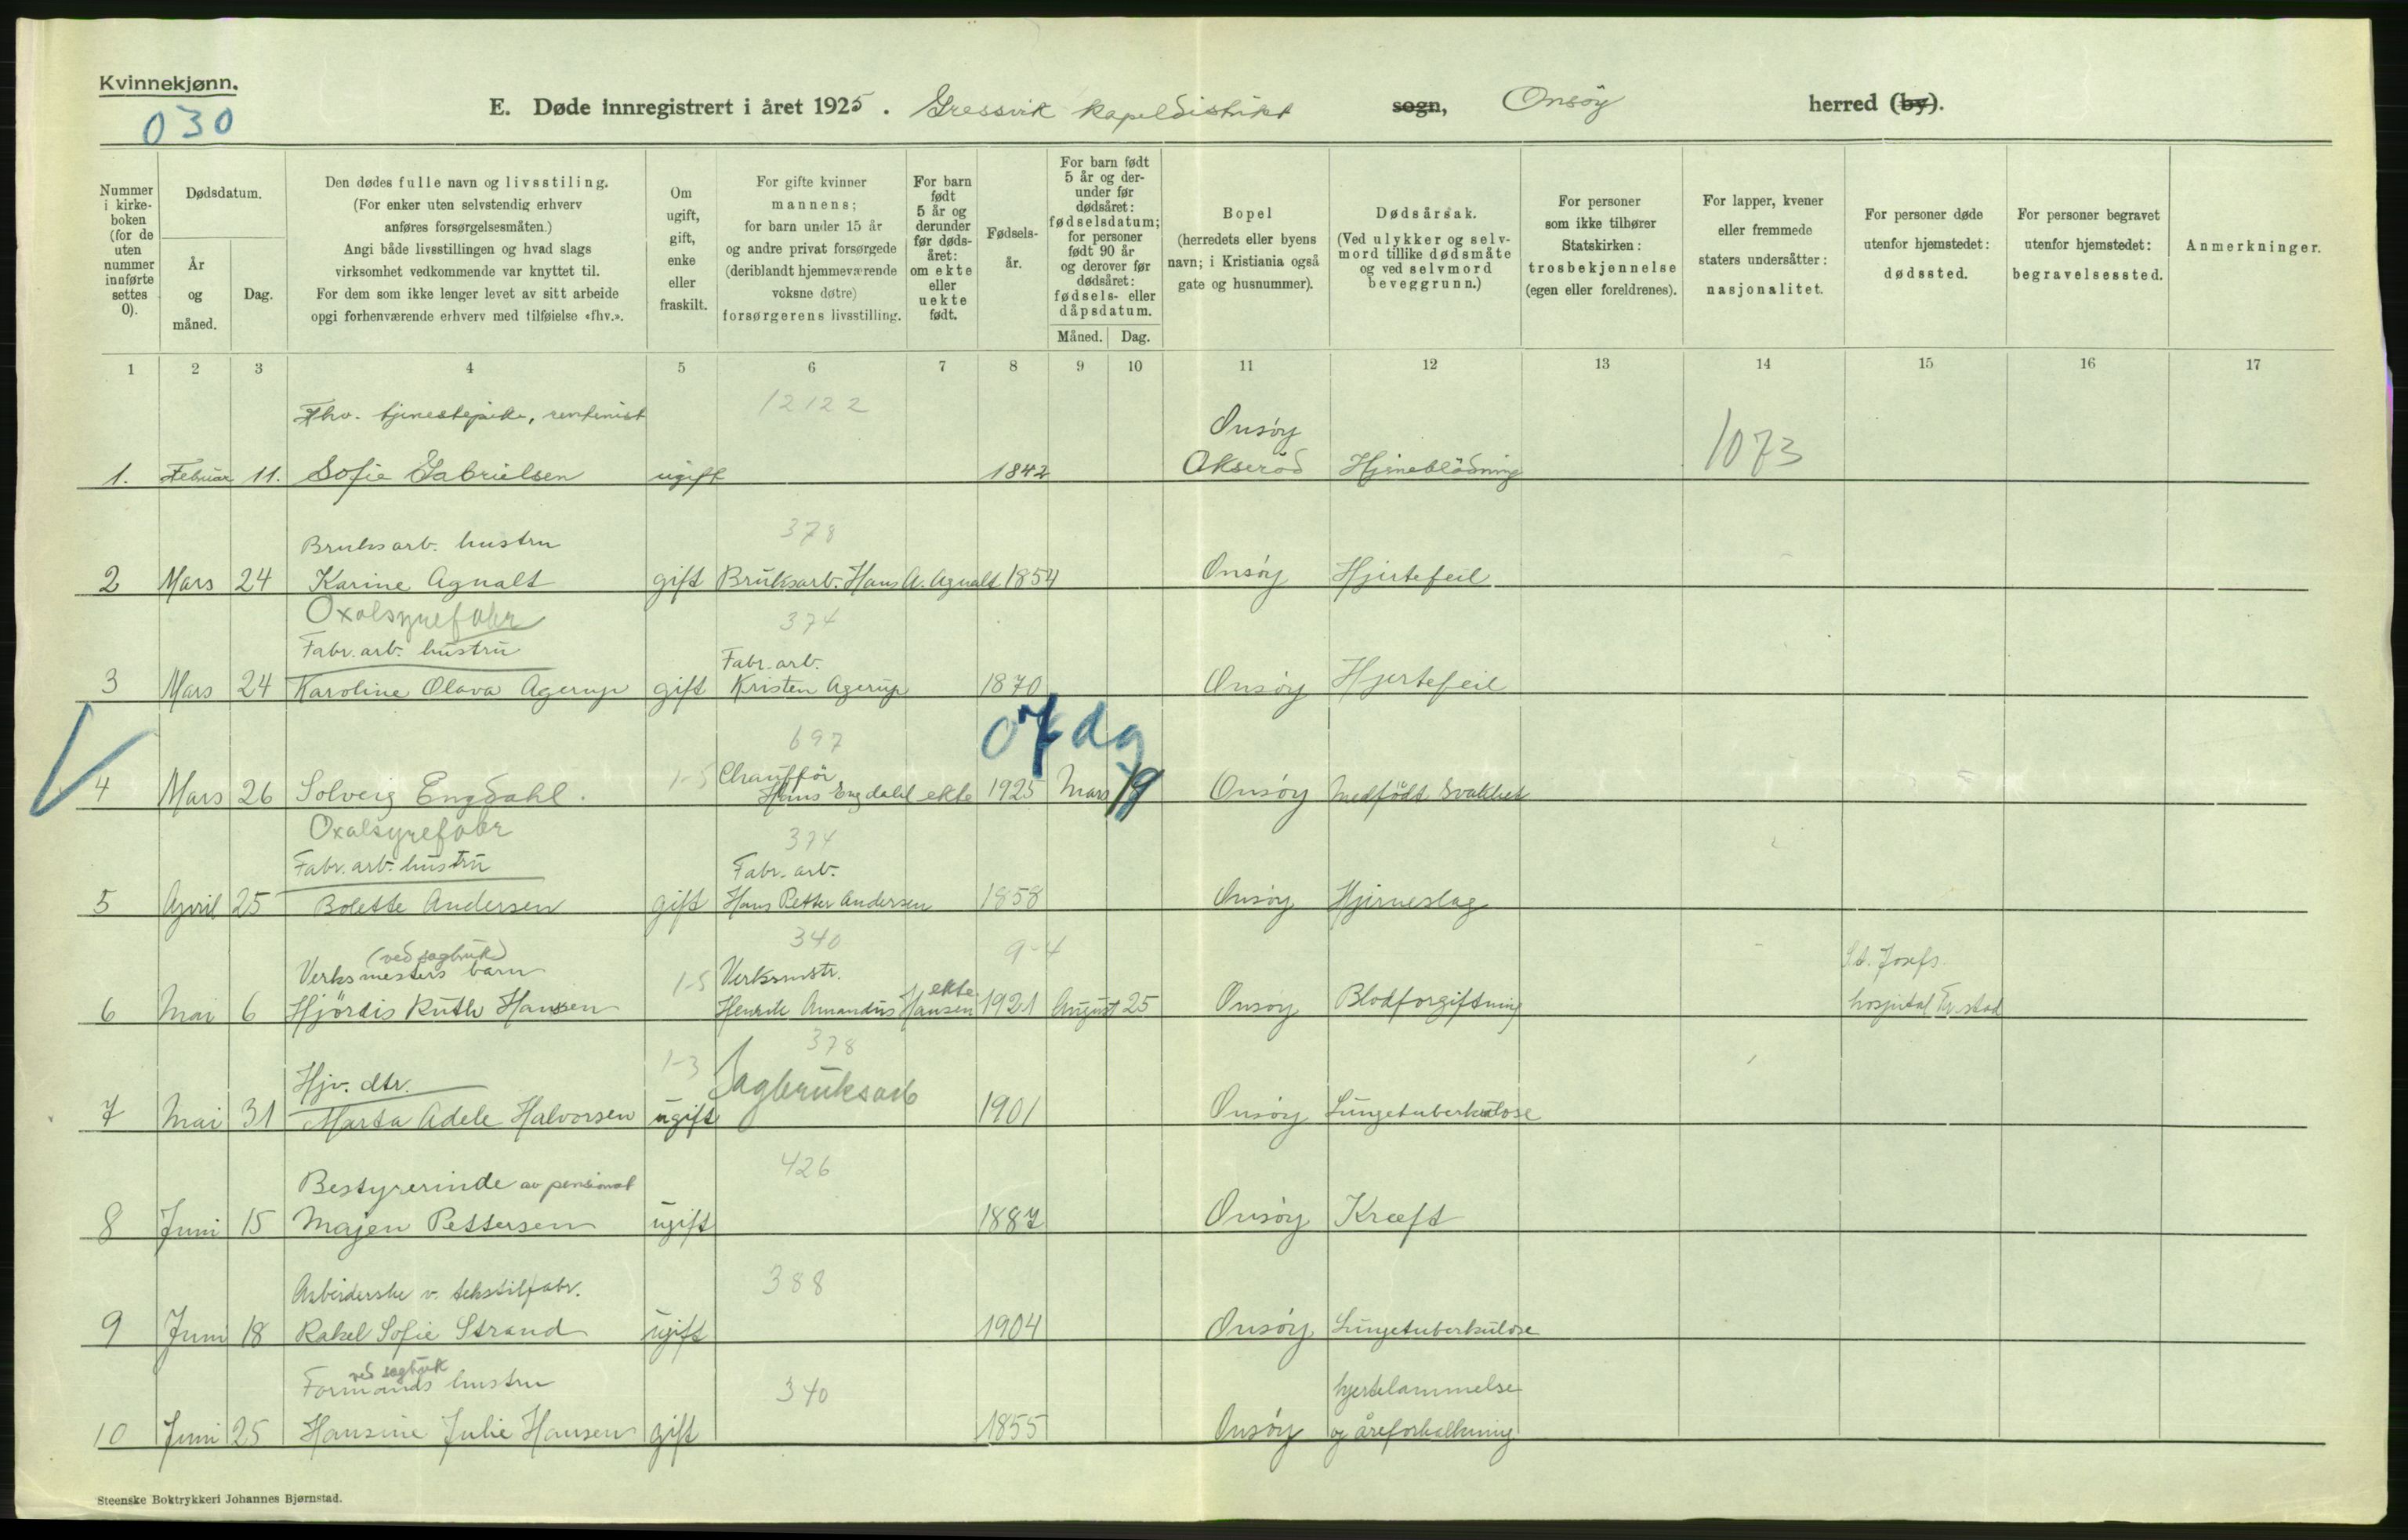 Kvinnekjønn.
030
E. Døde innregistrert i året 1925. Gressvik kapeldistrikt sogn, Onsöy herred (by).
Nummer i kirke- boken (for de uten nummer innførte settes 0).
Dødsdatum.
År og måned.
Dag.
Den dødes fulle navn og livsstilling.
(For enker uten selvstendig erhverv
anføres forsørgelsesmåten.)
Angi både livsstillingen og hvad slags
virksomhet vedkommende var knyttet til.
For dem som ikke lenger levet av sitt arbeide
opgi forhenværende erhverv med tilføielse «fhv.».
Om ugift, gift, enke eller fraskilt.
For gifte kvinner
mannens;
for barn under 15 år
og andre privat forsørgede
(deriblandt hjemmeværende
voksne døtre)
forsørgerens livsstilling.
For barn født 5 år og derunder før døds- året: om ekte eller uekte født.
Fødsels- år.
For barn født 5 år og der- under før dødsåret: fødselsdatum; for personer født 90 år og derover før dødsåret: fødsels- eller dåpsdatum.
Måned. Dag.
Bopel
(herredets eller byens
navn; i Kristiania også
gate og husnummer).
Dødsårsak.
(Ved ulykker og selv-
mord tillike dødsmåte
og ved selvmord
beveggrunn.)
For personer
som ikke tilhører
Statskirken:
trosbekjennelse
(egen eller foreldrenes).
For lapper, kvener
eller fremmede
staters undersåtter:
nasjonalitet.
For personer døde
utenfor hjemstedet:
dødssted.
For personer begravet
utenfor hjemstedet:
begravelsessted.
Anmerkninger.
1 2 3 4 5 6 7 8 9 10 11 12 13 14 15 16 17
Fhv. tjenestepike, rentenist 12122 Onsöy 1073
1. Februar 11. Sofie Gabrielsen ugift 1842 Akseröd Hjerneblödning
Bruksarb. hustru 378
2 Mars 24 Karine Agnalt gift Bruksarb. Hans A. Agnalt 1854 Onsöy Hjertefeil
Oxalsyrefabr 374
Fabr. arb. hustru Fabr. arb.
3 Mars 24 Karoline Olava Agerup gift Kristen Agerup 1870 Onsöy Hjertefeil
697 07 dg
1-5 Chaufför
4 Mars 26 Solveig Engdahl. Hans Engdahl ekte 1925 Mars 19 Onsöy Medfödt Svakhet
Oxalsyrefabr 374
Fabr. arb. hustru Fabr. arb.
5 April 25 Bolette Andersen gift Hans Petter Andersen 1858 Onsöy Hjerneslag
(ved sagbruk) 340 9-4 St. Josefs
Verksmesters barn 1-5 Verksmstr. ekte
6 Mai 6 Hjördis Ruth Hansen Henrik Amandus Hansen 1921 August 25 Onsöy Blodforgiftning hospital Fr.stad
378
Hjv. dtr. 1-3 Sagbruksarb
7 Mai 31 Marta Adele Halvorsen ugift 1901 Onsöy Lungetuberkulose
Bestyrerinde av pensionat 426
8 Juni 15 Majen Pettersen ugift 1887 Onsöy Kræft
Arbeiderske v. tekstilfabr. 388
9 Juni 18 Rakel Sofie Strand ugift 1904 Onsöy Lungetuberkulose
ved sagbruk
Formands hustru 340 hjertelammelse
10 Juni 25 Hansine Julie Hansen gift 1855 Onsöy og åreforkalkning
Steenske Boktrykkeri Johannes Bjørnstad.